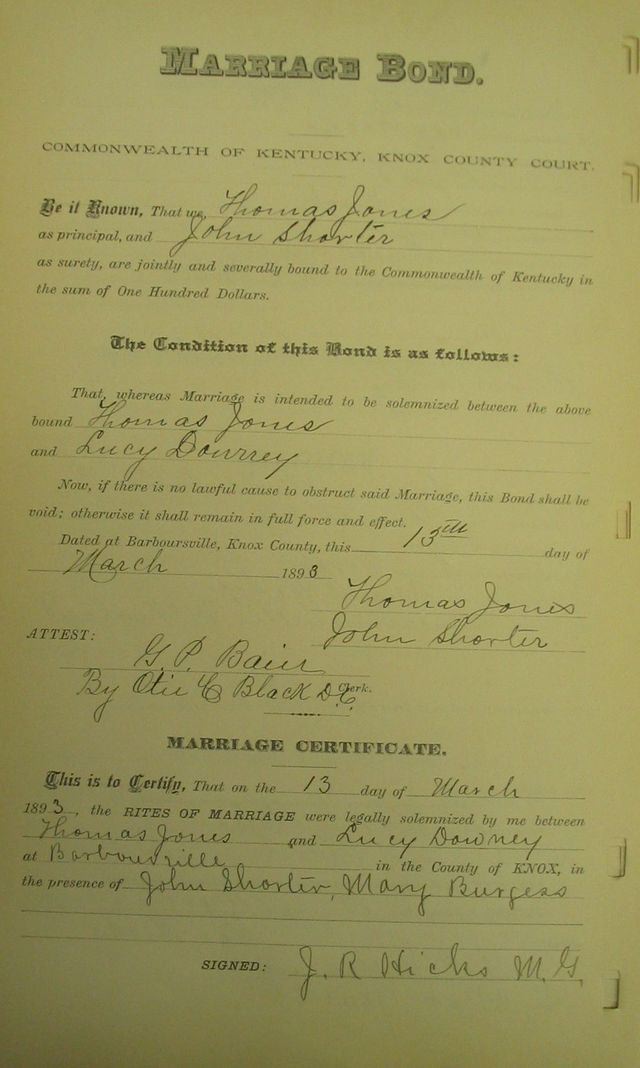 MARRIAGE BOND.
COMMONWEALTH OF KENTUCKY, KNOX COUNTY COURT.
Be it Known, That we, Thomas Jones
as principal, and John Shorter
as surety, are jointly and severally bound to the Commonwealth of Kentucky in
the sum of One Hundred Dollars.
The Condition of this Bond is as follows:
That, whereas Marriage is intended to be solemnized between the above
bound Thomas Jones
and Lucy Downey
Now, if there is no lawful cause to obstruct said Marriage, this Bond shall be
void; otherwise it shall remain in full force and effect.
Dated at Barboursville, Knox County, this 13TH day of
March 1893
Thomas Jones
John Shorter
ATTEST:
G. P. Baier
By Otie C Black D.C. Clerk.
MARRIAGE CERTIFICATE.
This is to Certify, That on the 13 day of March
1893, the RITES OF MARRIAGE were legally solemnized by me between
Thomas Jones and Lucy Downey
at Barboursville in the County of KNOX, in
the presence of John Shorter, Mary Burgess
SIGNED: J. R Hicks M. G.